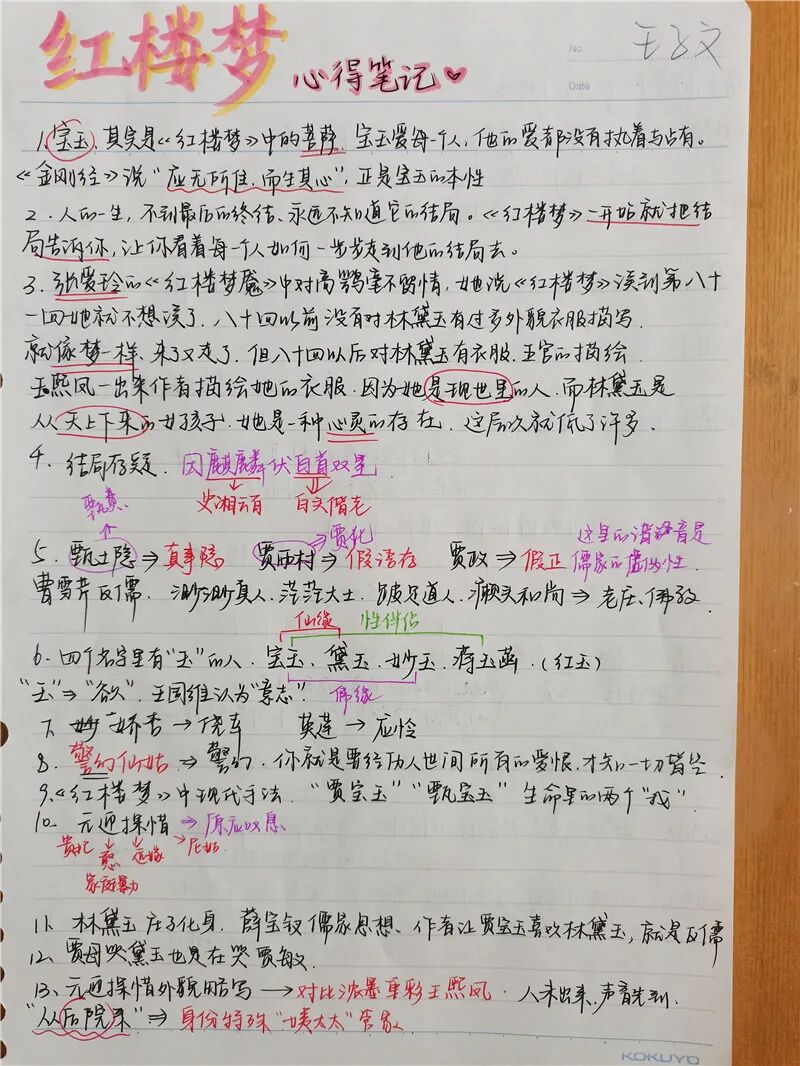 红楼梦 心得笔记
No.
王子文
Date
1. 宝玉,其实是《红楼梦》中的菩萨,宝玉爱每一个人,他的爱都没有执着与占有。
《金刚经》说“应无所住,而生其心”,正是宝玉的本性
2. 人的一生,不到最后的终结、永远不知道它的结局。《红楼梦》一开始就把结
局告诉你,让你看着每一个人如何一步步走到他的结局去。
3. 张爱玲的《红楼梦魇》中对高鹗毫不留情,她说《红楼梦》读到第八十
一回她就不想读了.八十回以前没有对林黛玉有过多外貌衣服描写.
就像梦一样、来了又走了.但八十回以后对林黛玉有衣服.玉官的描绘
王熙凤一出来作者描绘她的衣服.因为她是现世里的人.而林黛玉是
从天上下来的女孩子.她是一种心灵的存在.这层次就低了许多.
4. 结局存疑.因麒麟伏白首双星
史湘云有 白头偕老
甄费
贾化
这里的谐语音是
5. 甄士隐⇒真事隐 贾雨村⇒假语存 贾政⇒假正 儒家的虚伪性.
曹雪芹反儒. 渺渺真人.茫茫大士.跛足道人.癞头和尚⇒老庄、佛教.
仙缘 性伴侣
6. 四个名字里有“玉”的人.宝玉、黛玉、妙玉、蒋玉菡.(红玉)
“玉”⇒“欲”.王国维认为“意志”. 佛缘
7. 娇杏→侥幸 英莲→应怜
8. 警幻仙姑⇒警幻.你就是要经历人世间所有的爱恨.才知一切皆空
9. 《红楼梦》中现代手法.“贾宝玉”“甄宝玉”生命里的两个“我”.
10. 元迎探惜⇒原应叹息
贵妃 远嫁 尼姑.
家庭暴力
11. 林黛玉庄子化身.薛宝钗儒家思想、作者让贾宝玉喜欢林黛玉,就是反儒
12. 贾母哭黛玉也是在哭贾敏.
13. 元迎探惜外貌略写→对比浓墨重彩王熙凤.人未出来,声音先到.
“从后院来”⇒身份特殊“姨太太”管家
KOKUYO